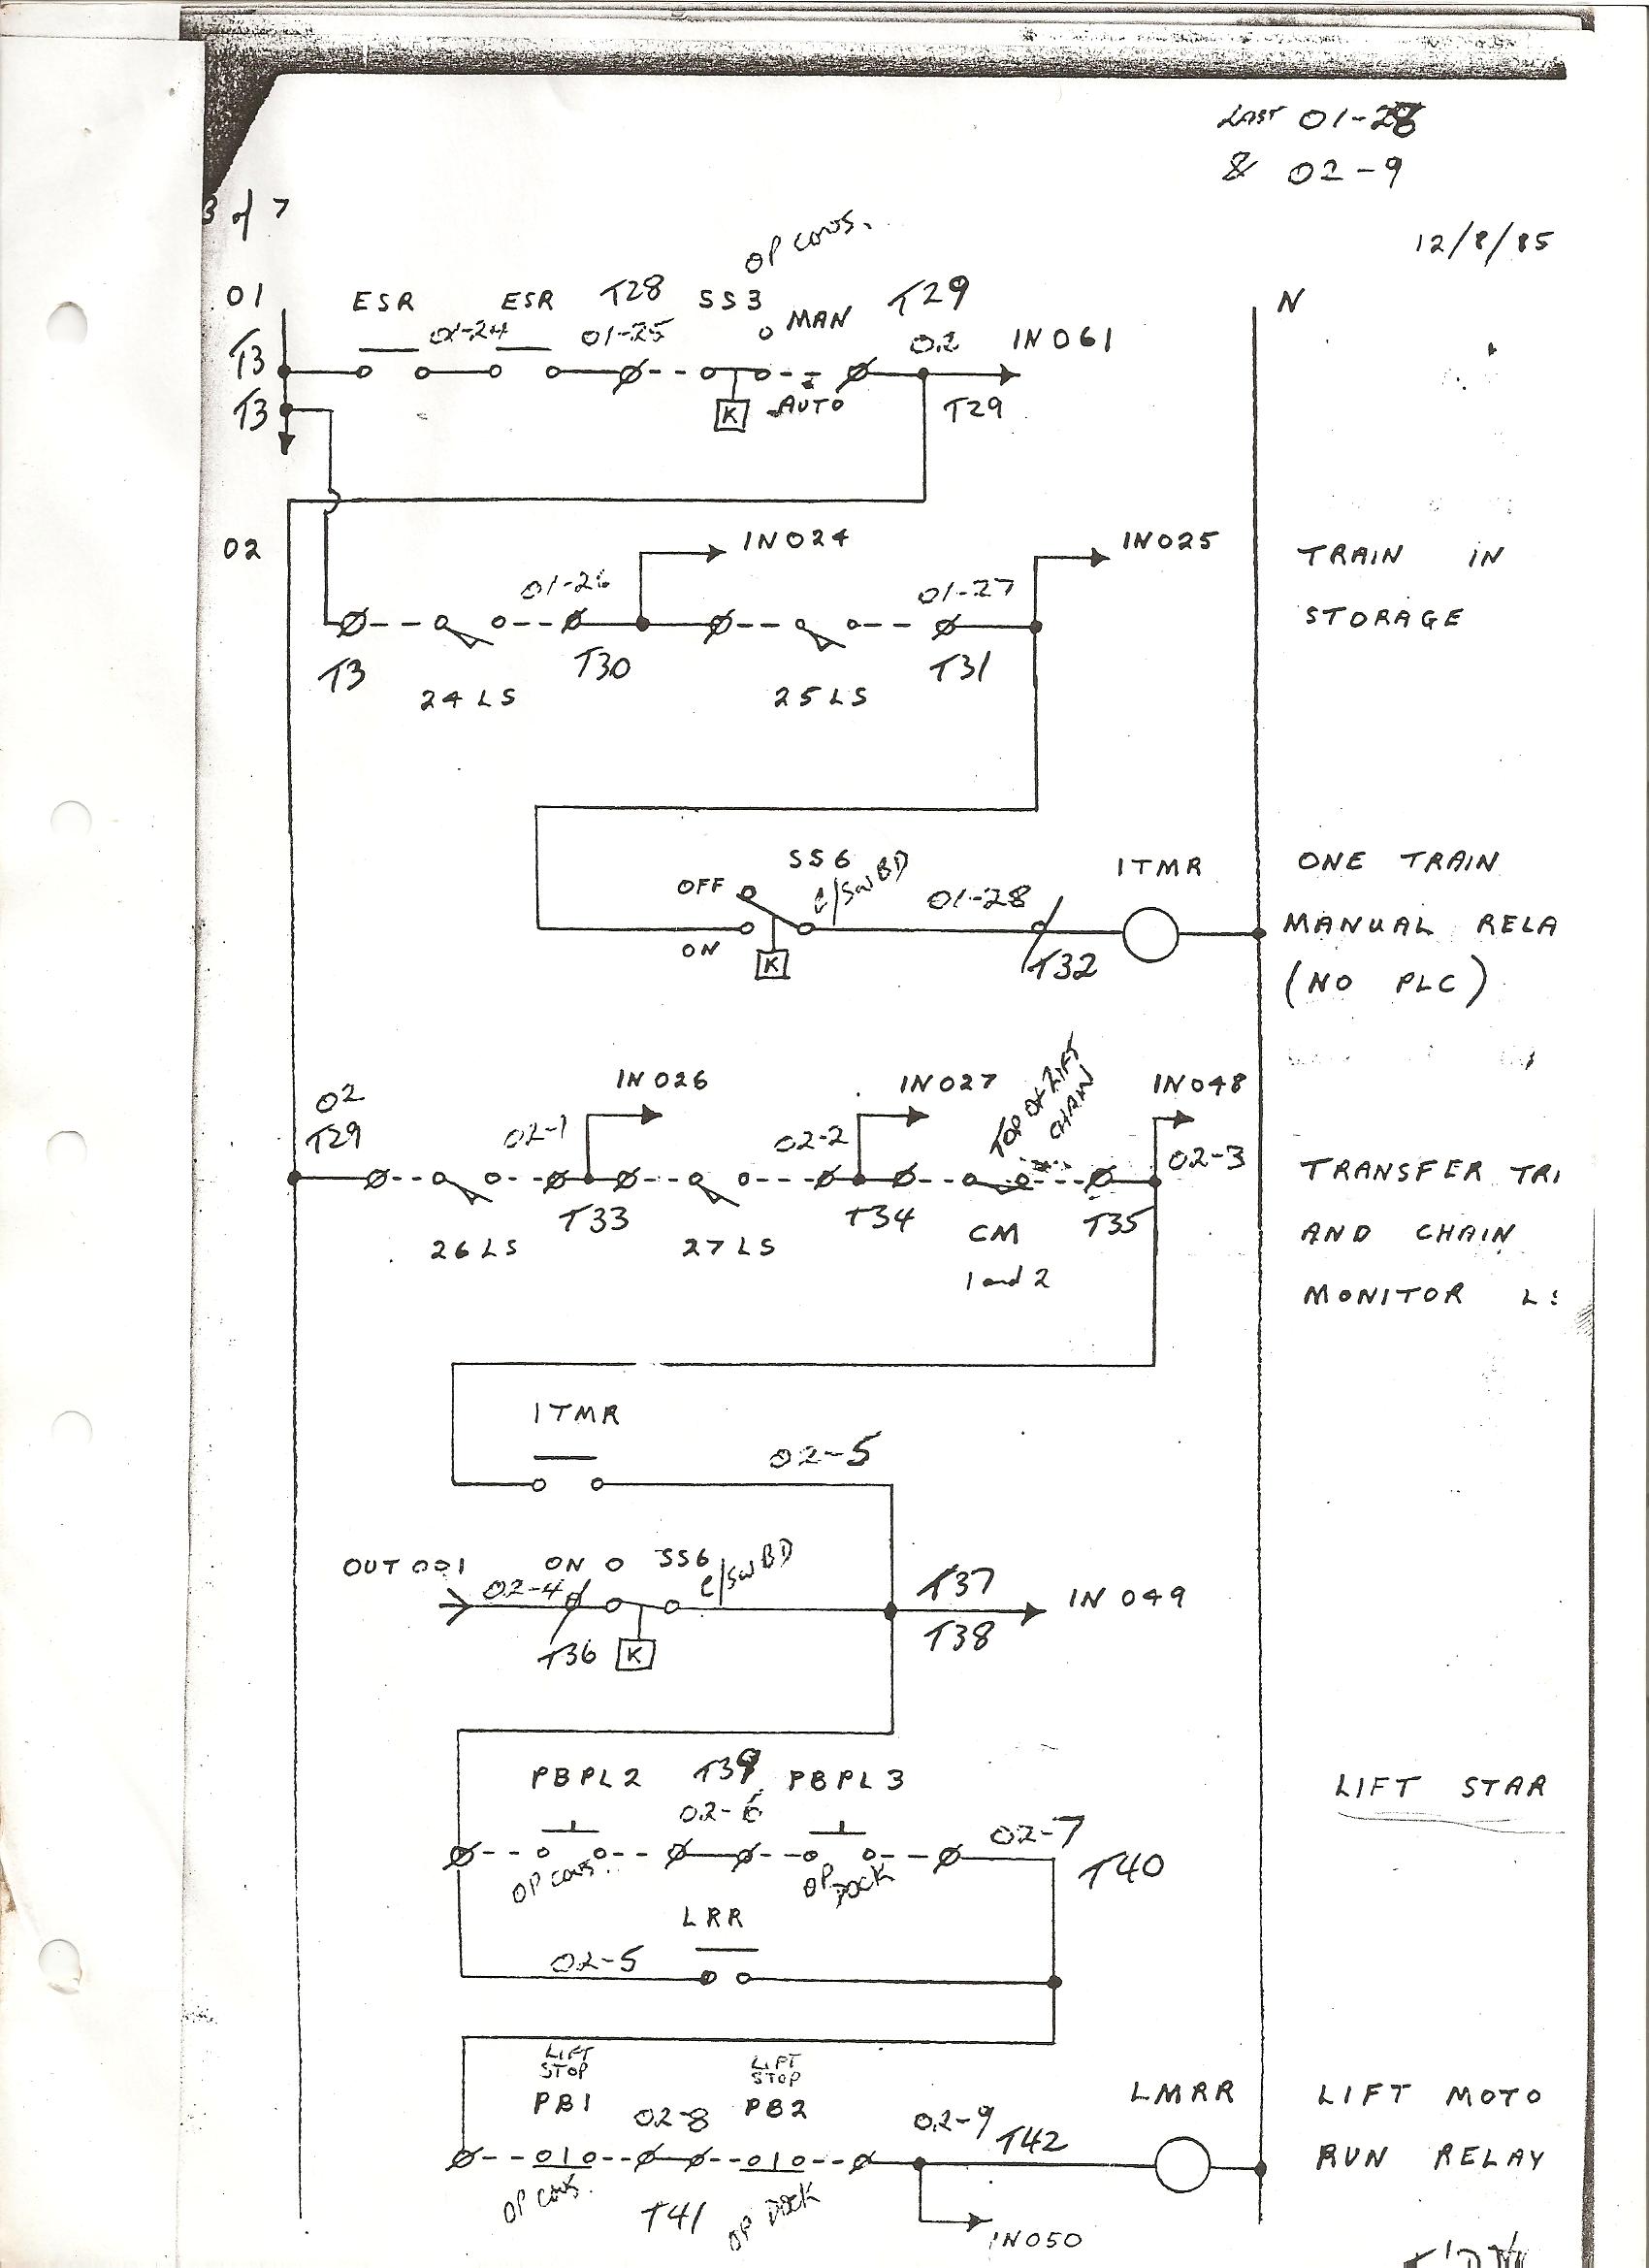 LAST 01-28
& 02-9
3 of 7
12/8/85
OP CONS.
01 ESR ESR T28 SS3 MAN T29 N
T3 01-24 01-25 02 IN061
T3 K AUTO T29
02 IN024 IN025 TRAIN IN
01-26 01-27 STORAGE
T3 T30 T31
24LS 25LS
SS6 1TMR ONE TRAIN
OFF C/SWBD 01-28 MANUAL RELA
ON K T32 (NO PLC)
02 IN026 IN027 TOP OF LIFT CHAIN IN048
T29 02-1 02-2 02-3 TRANSFER TR
T33 T34 CM T35 AND CHAIN
26LS 27LS 1 and 2 MONITOR LS
1TMR
02-5
OUT 001 ON SS6 C/SWBD T37 IN049
02-4 T38
T36 K
PBPL2 T39 PBPL3 LIFT STAR
02-6 02-7
OP CONS. OP DOCK T40
LRR
02-5
LIFT STOP LIFT STOP
PB1 02-8 PB2 02-9 T42 LMRR LIFT MOTO
RUN RELAY
OP CONS. T41 OP DOCK
IN050